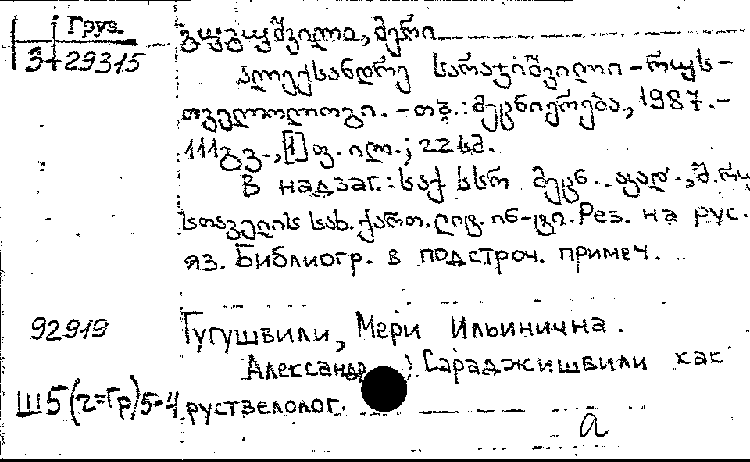 Груз.
3-29315
გუგუშვილი, მერი
ალექსანდრე სარაჯიშვილი – რუს-
თველოლოგი. – თბ.: მეცნიერება, 1987. –
111 გვ., [1] ფ. ილ.; 22 სმ.
В надзаг.: საქ სსრ მეცნ. აკად., შ. რუ
სთაველის სახ. ქართ. ლიტ. ინ-ტი. Рез. на рус.
яз. Библиогр. в подстроч. примеч.
92919
Гугушвили, Мери Ильинична.
Александр Сараджишвили как
Ш5(2=Гр)5-4 руствелолог.
а